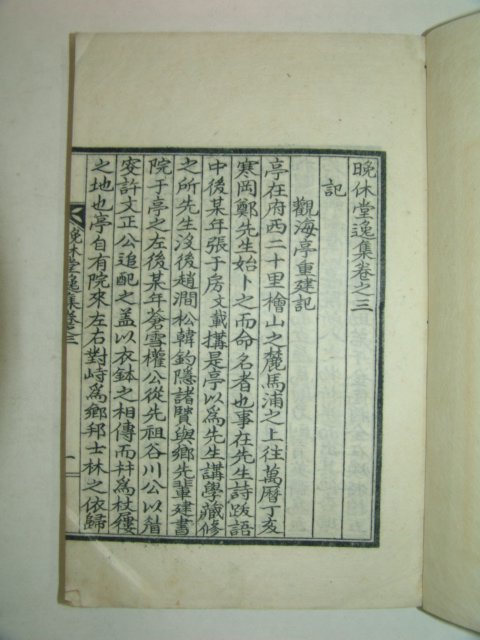 晚休堂逸集卷之三
記
觀海亭重建記
亭在府西二十里檜山之麓馬浦之上往萬曆丁亥
寒岡鄭先生始卜之而命名者也事在先生詩跋語
中後某年張于房文載搆是亭以爲先生講學藏修
之所先生沒後趙澗松韓釣隱諸賢與鄉先輩建書
院于亭之左後某年蒼雪權公從先祖谷川公以眉
安許文正公追配之盖以衣鉢之相傳而幷爲杖屨
之地也亭自有院來左右對峙爲鄉邦士林之依歸
晚休堂逸集卷三
一